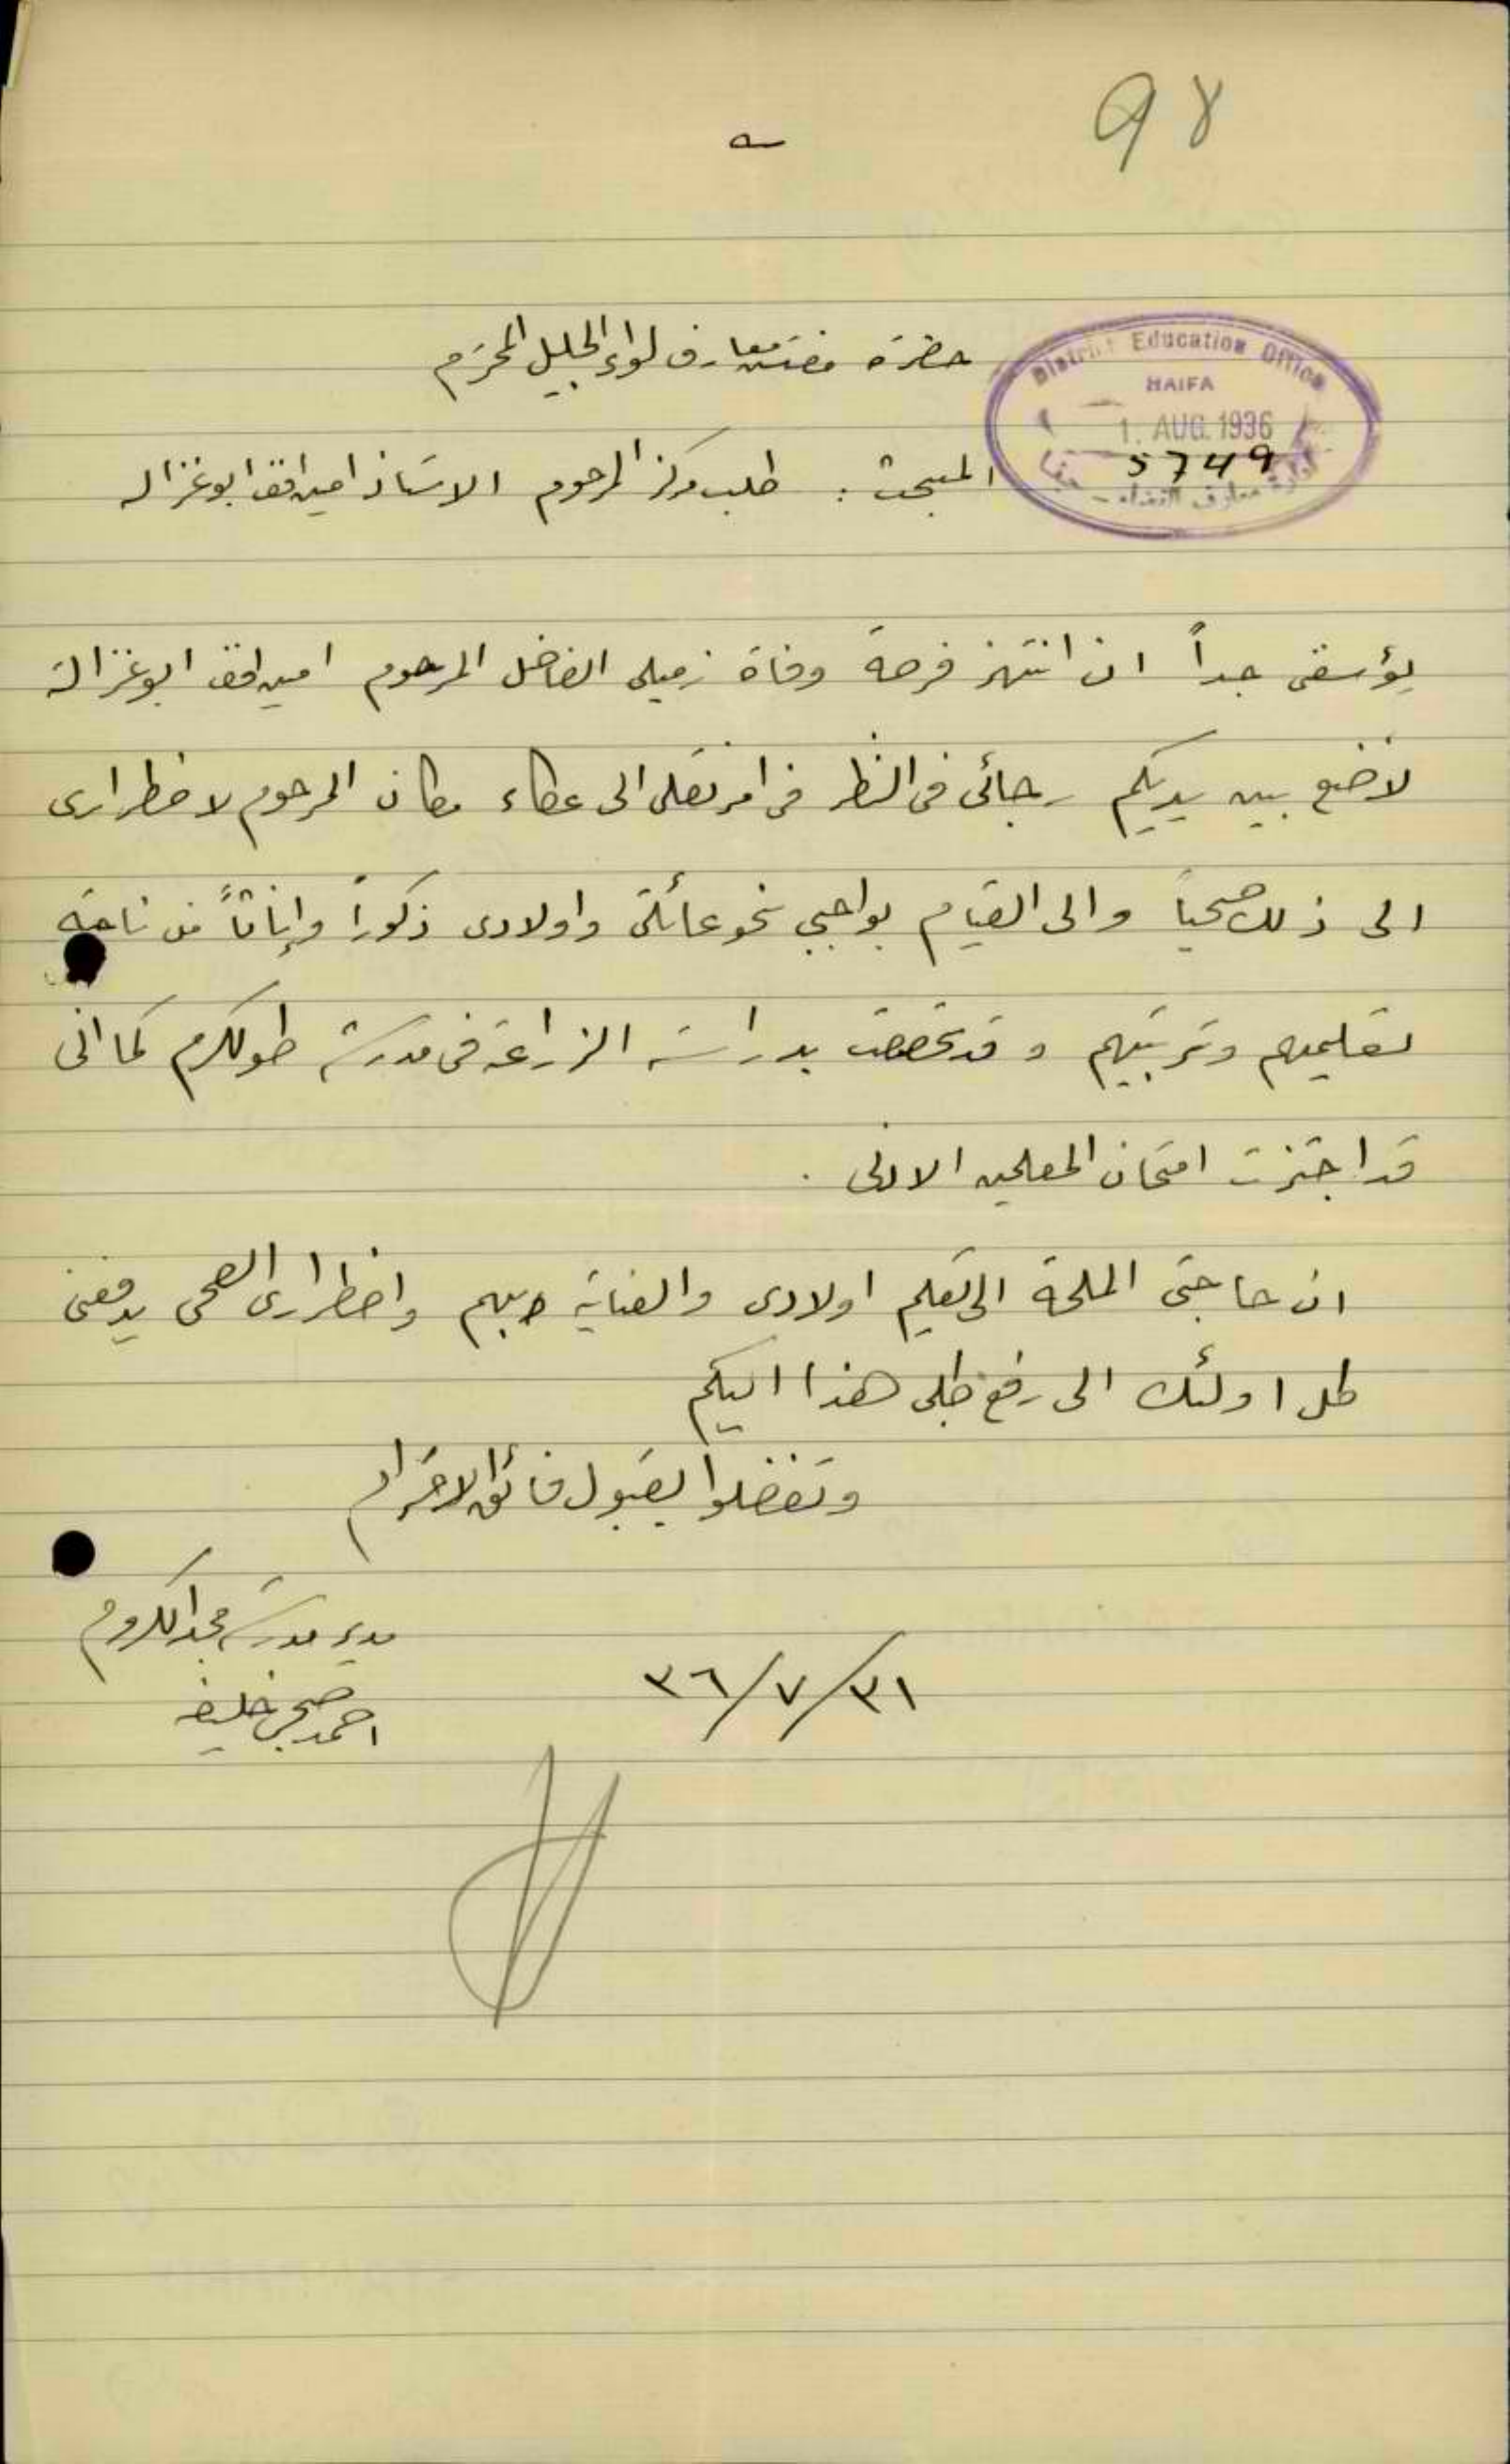 98
حضرة مفتش معارف لواء الجليل المحترم
District Education Office
HAIFA
1. AUG. 1936
5749
ادارة معارف القضاء - حيفا
المبحث : طلب مركز المرحوم الاستاذ امين افندي ابو غزاله
يؤسفني جداً ان انتهز فرصة وفاة زميلي الفاضل المرحوم امين افندي ابو غزالة
لأضع بين يديكم رجائي في النظر في امر نقلي الى عكاء مكان المرحوم لاضطراري
الى ذلك صحياً والى القيام بواجبي نحو عائلتي واولادي ذكوراً وإناثاً من ناحية
تعليمهم وتربيتهم وقد تخصصت بدراسة الزراعة في مدرسة طولكرم كما اني
قد اجتزت امتحان المعلمين الادنى .
ان حاجتي الملحة الى تعليم اولادي والعناية بهم واضطراري الصحي يدفعني
كل اولئك الى رفع طلبي هذا اليكم
وتفضلوا بقبول فائق الاحترام
مدير مدرسة مجد الكروم
احمد صبحي خليفه
٣١/٧/٣٦